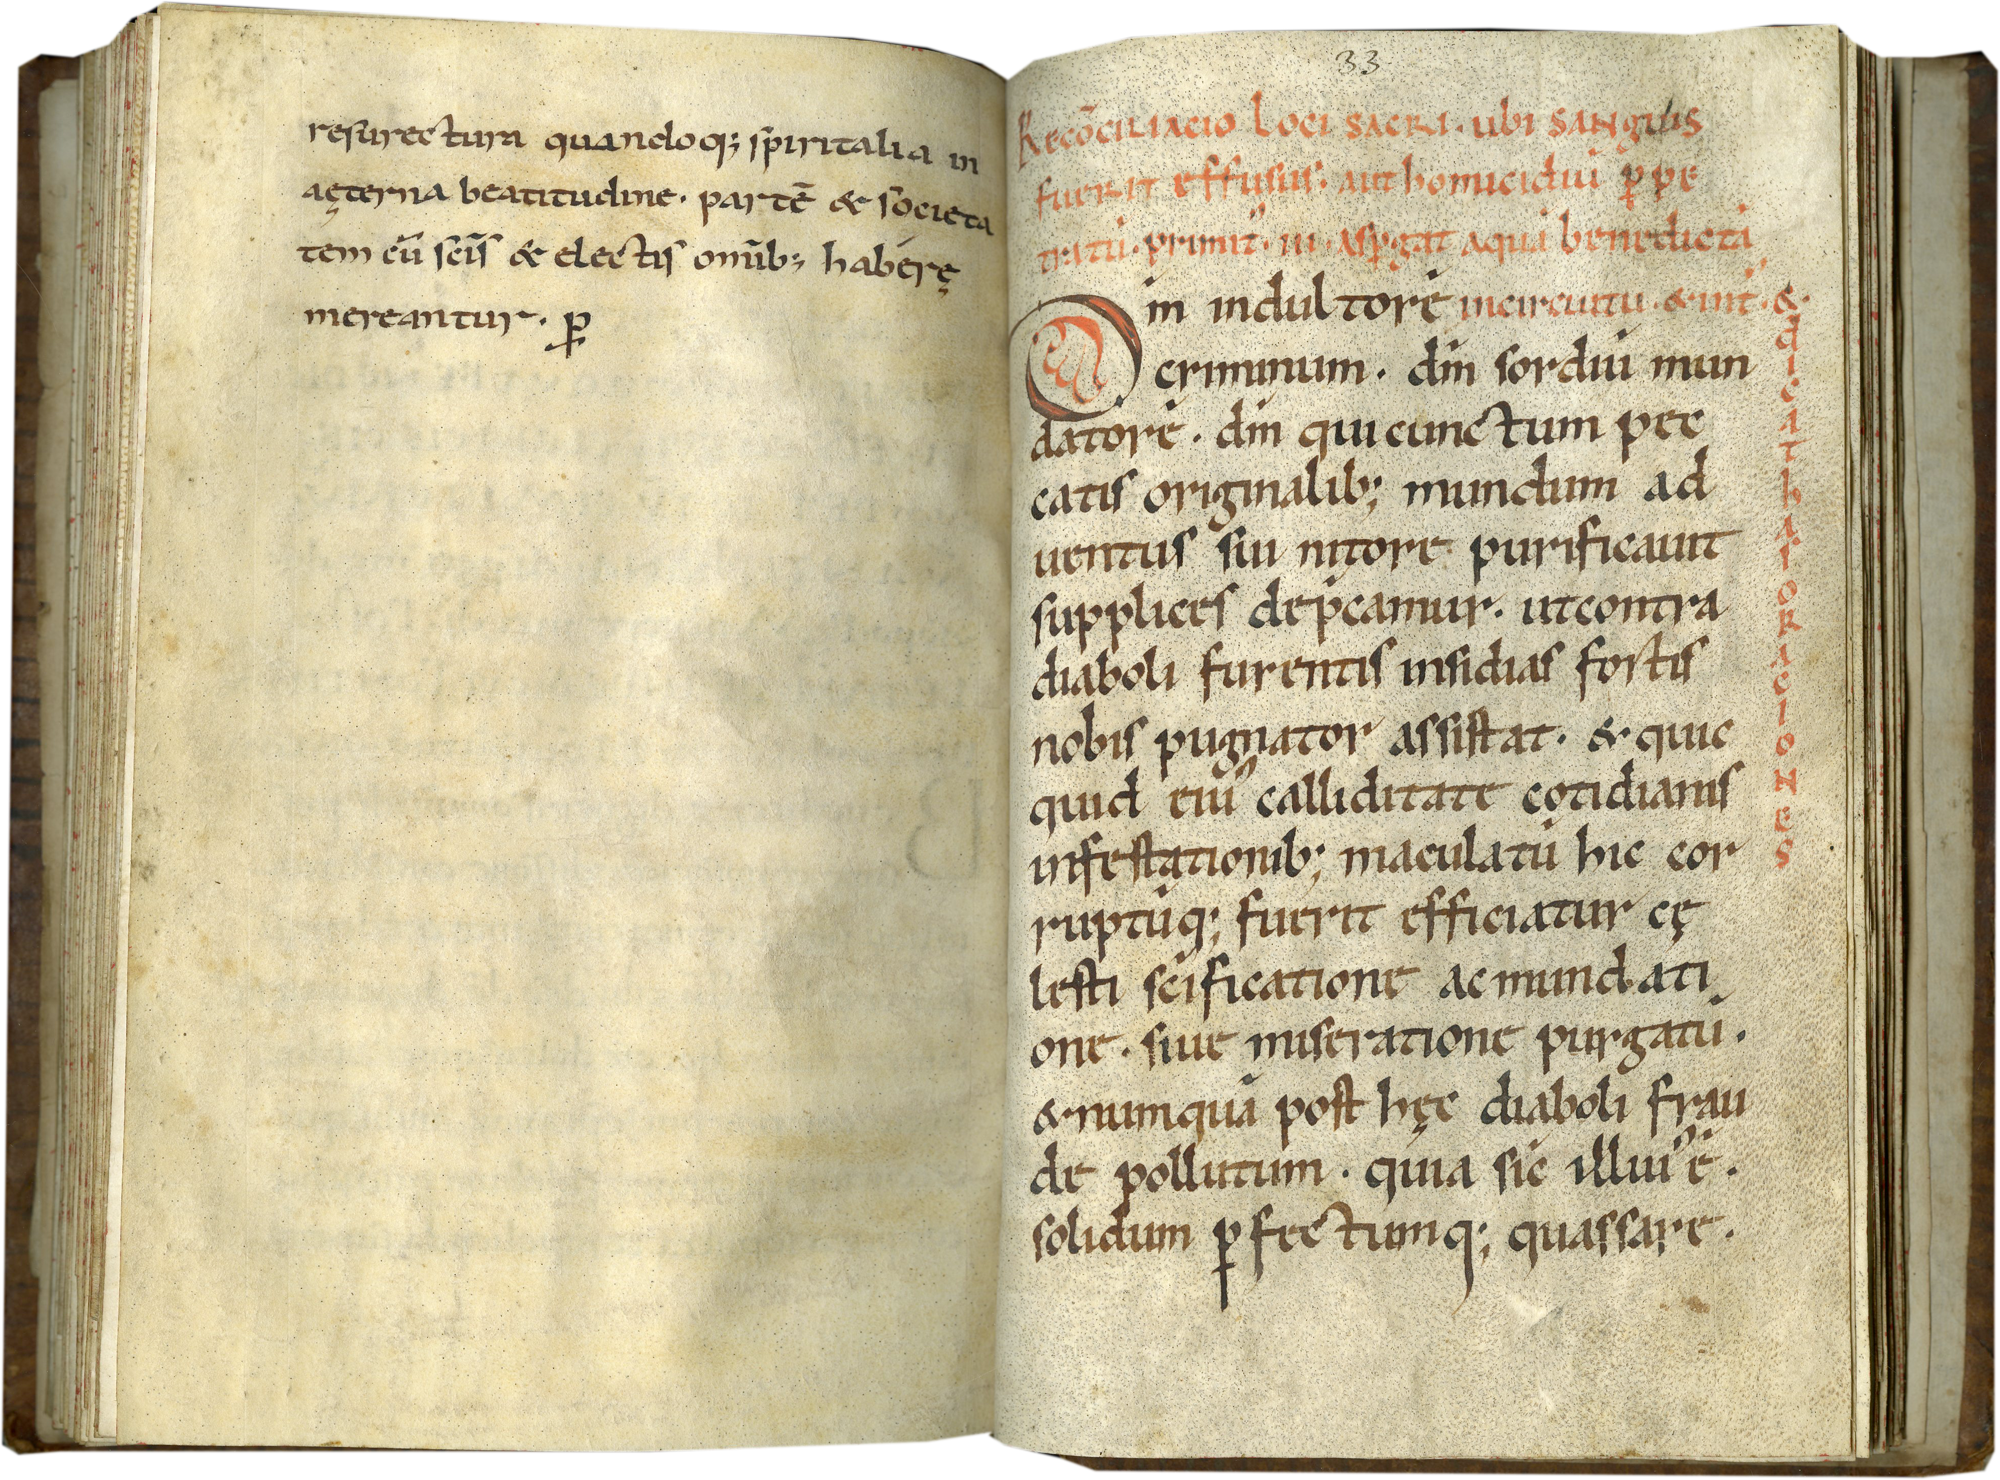 resurectura quandoq; spiritalia in
aęterna beatitudine · partē & societa
tem cū sc̄is & electis omīb; haberę
mereantur · p̱
33
Recōciliacio loci sacri · ubi sanguis
fuerit effusus · aut homicidiū p̱pe
tratū · primit᷒ in aspgat aqua benedicta
in circuitu · & int᷒ · &
dicat has oraciones
Dm̄ indultorē
criminum · dm̄ sordiū mun
datorē · dm̄ qui cunctum pec
catis originalib; mundum ad
uentus sui nitore purificauit
supplices dep̄camur · ut contra
diaboli furentis insidias fortis
nobis pugnator assistat · & quic
quid eiu᷒ calliditate cotidianis
infestationib; maculatū hic cor
ruptūq; fuerit efficiatur cę
lesti sc̄ificatione ac mundati
one · siue miseratione purgatū ·
& numquā post hęc diaboli frau
de pollutum · quia sic illiu᷒ ē ·
solidum p̱fectumq; quassare ·